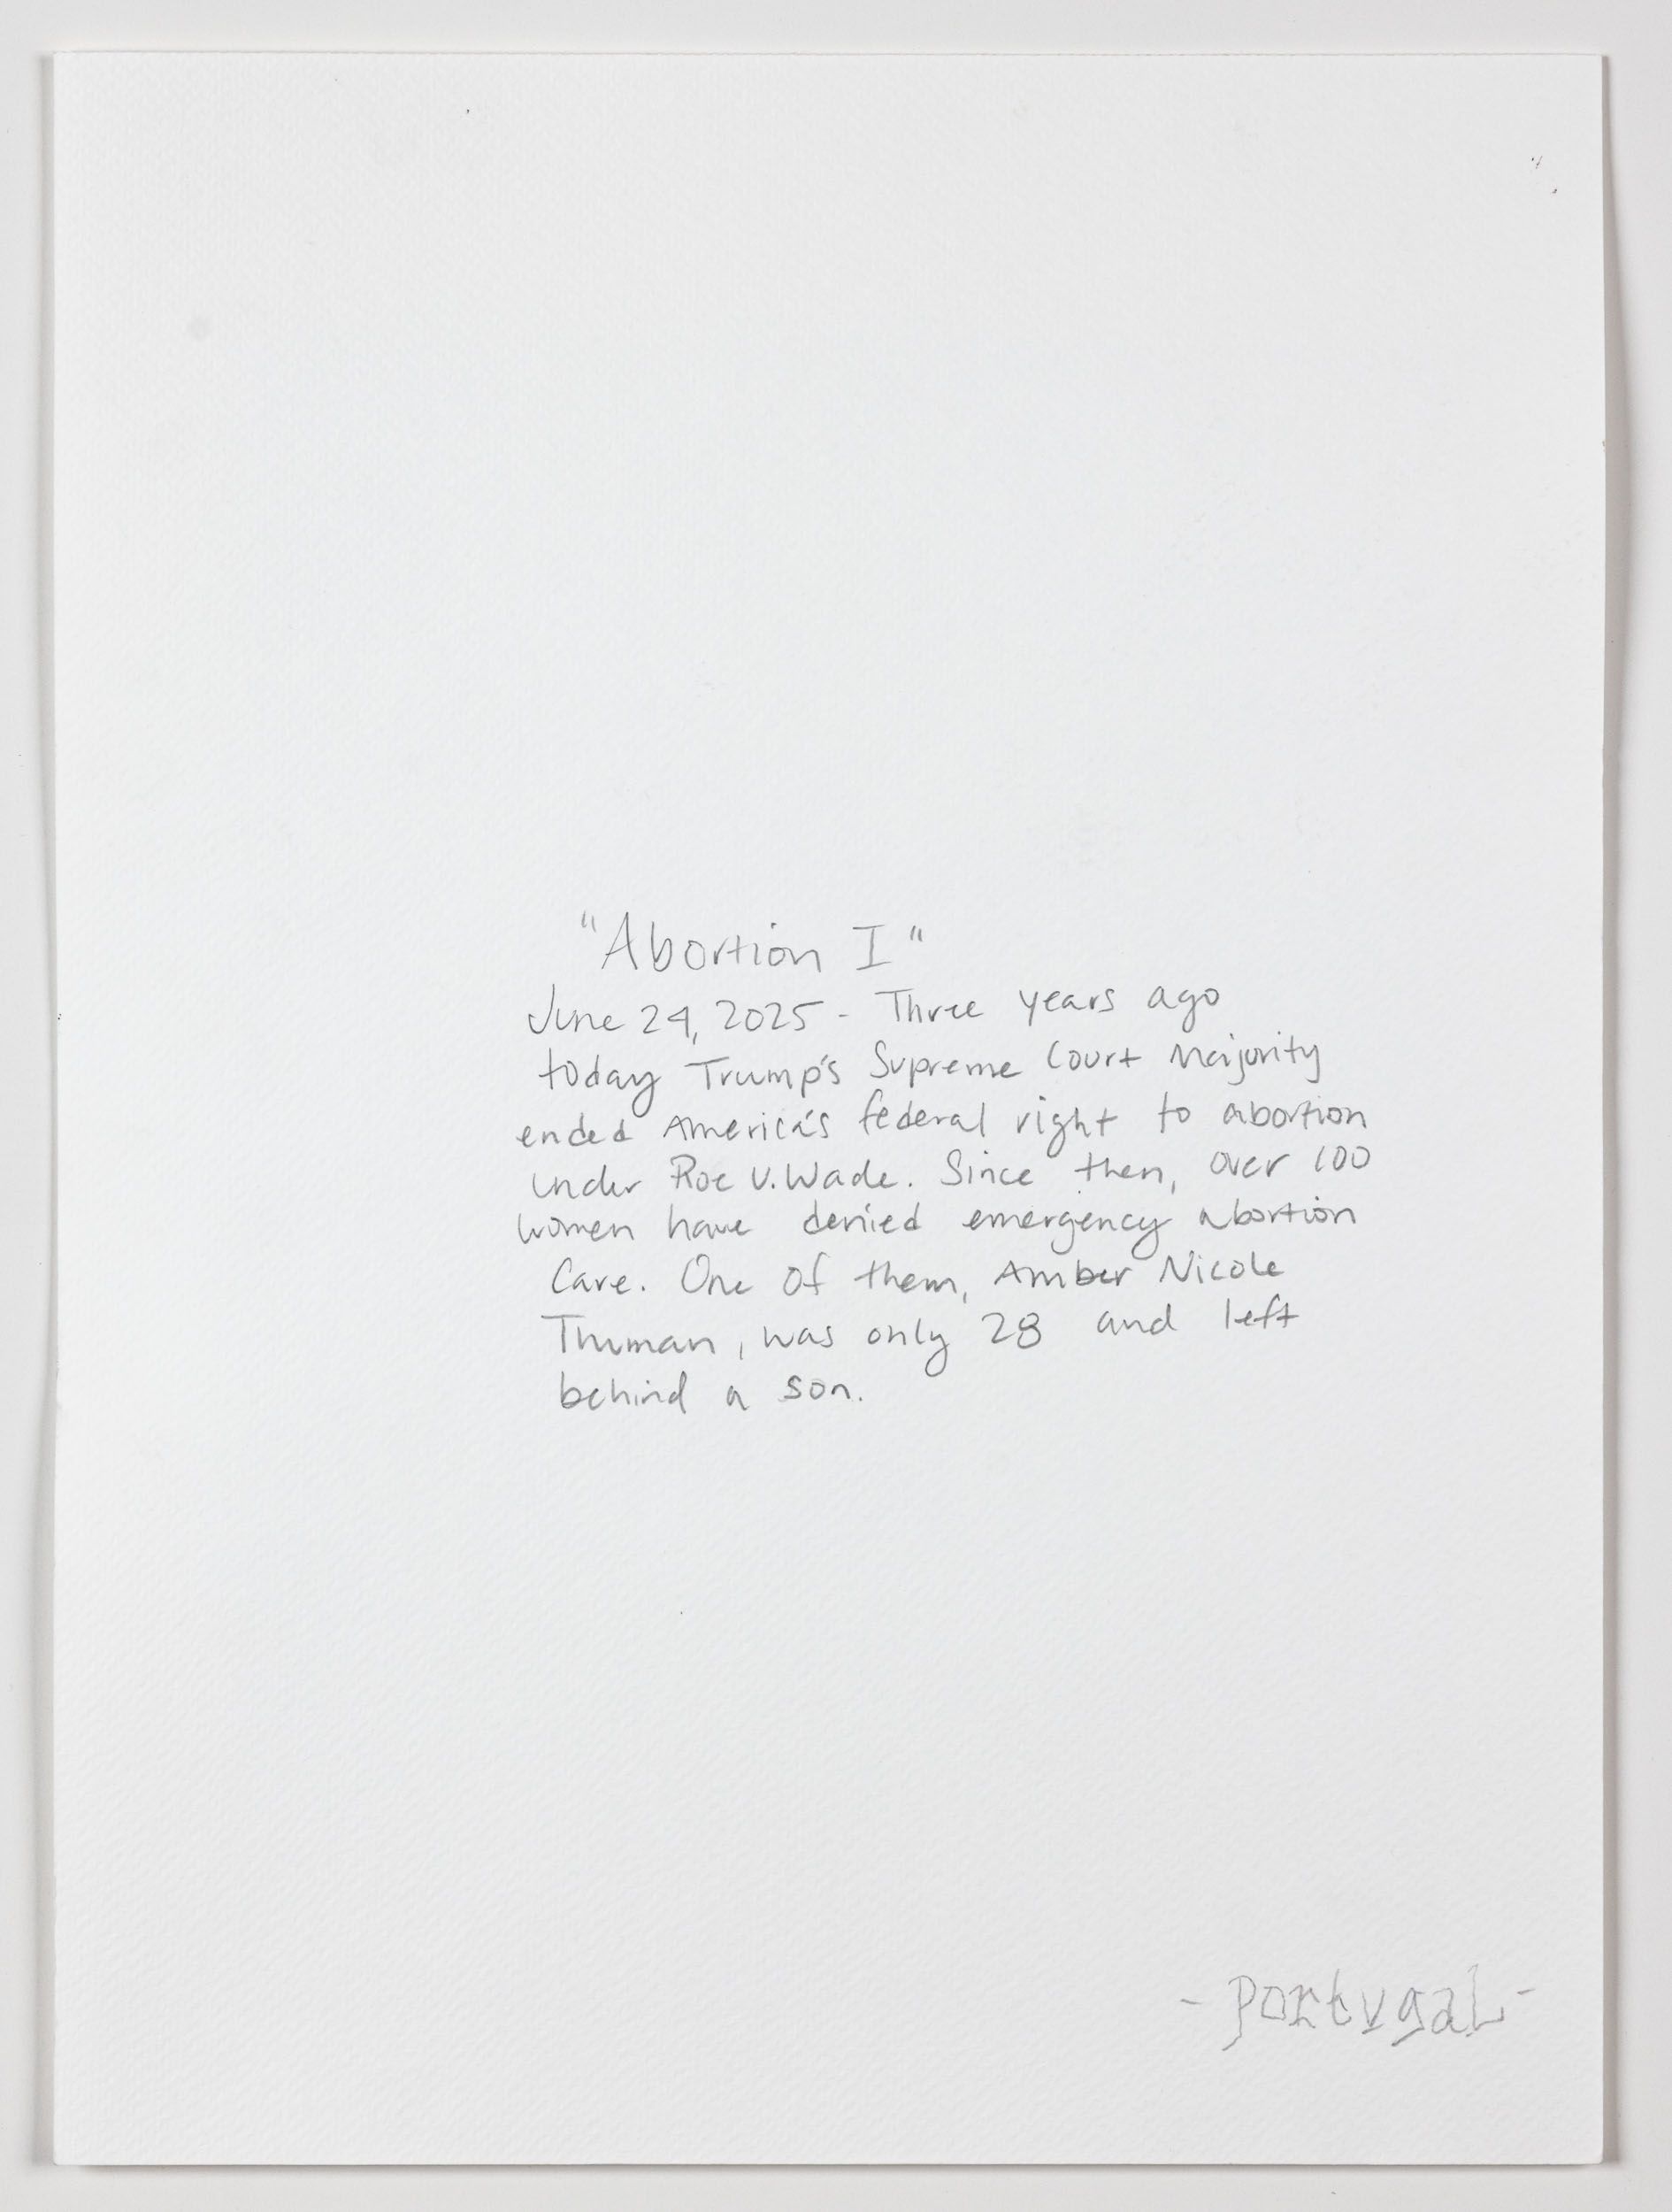 "Abortion I"
June 24, 2025 - Three years ago
today Trump's Supreme Court Majority
ended America's federal right to abortion
under Roe V. Wade. Since then, over 100
women have denied emergency abortion
care. One of them, Amber Nicole
Thurman, was only 28 and left
behind a son.
- Portugal -